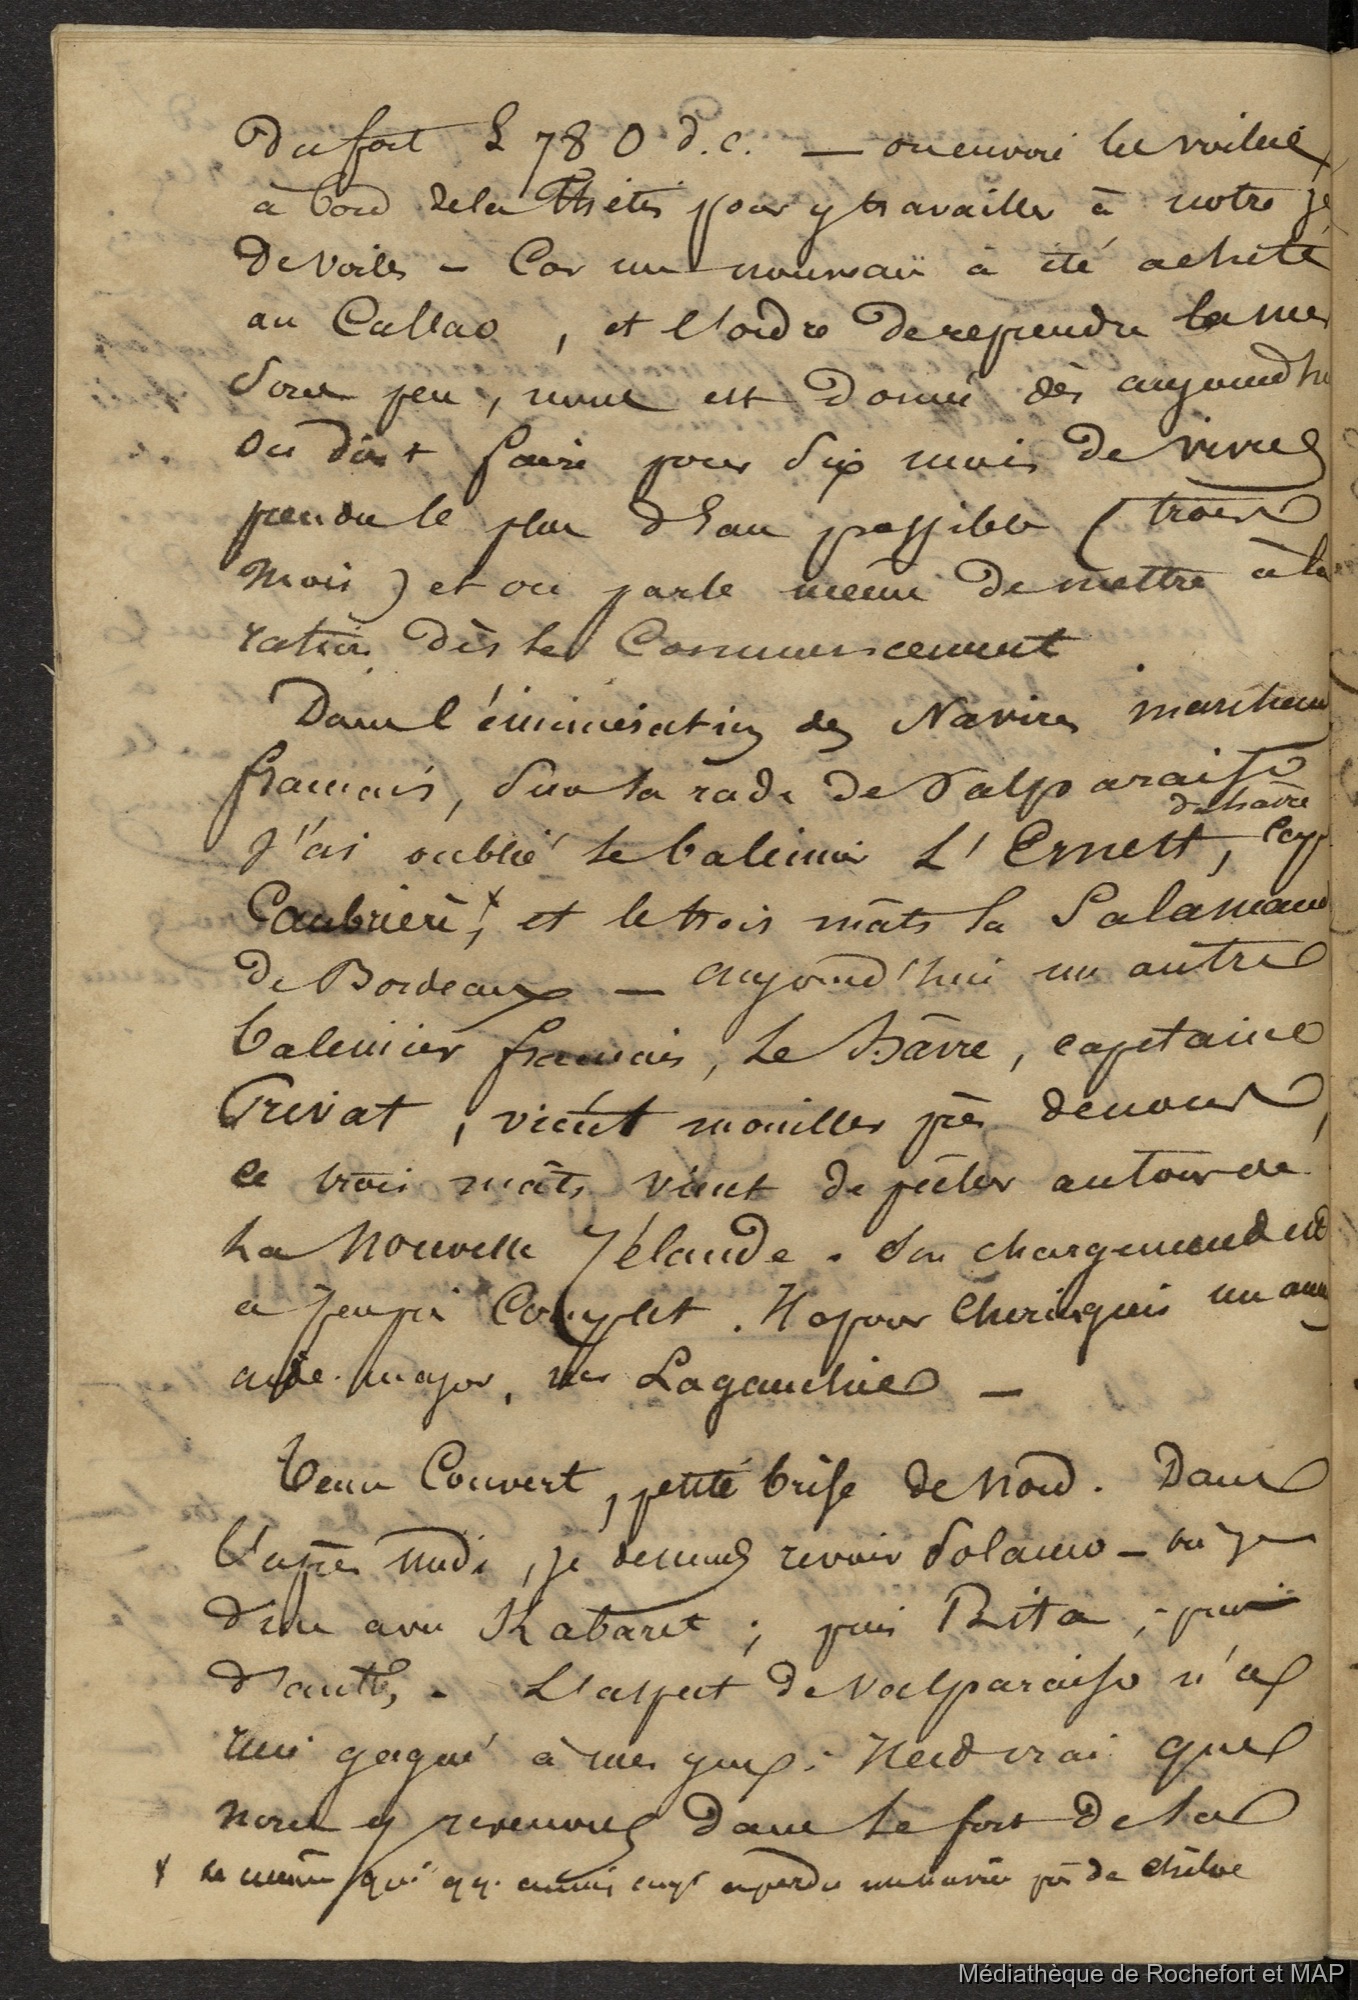 Du fort S 78 O d.c. — on envoie les voiliers
à bord de la Thétis pour y travailler à notre je
de voiles – Car un nouveau a été acheté
au Callao, et l'ordre de reprendre la mer
sous peu, nous est donné dès aujourd'hu
on doit faire pour six mois de vivres
prendre le plus d'eau possible (trois
mois) et on parle même de mettre à la
ration dès le Commencement
Dans l'énumération des Navires marchan
français, sur la rade de Valparaiso
du hâvre
J'ai oublié le baleinier L'Ernest, Cap
Gaubrière ×, et le trois mâts la Salamand
de Bordeaux — aujourd'hui un autre
baleinier français, Le Hâvre, capitaine
Privat, vient mouiller près de nous,
ce trois mâts vient de pêcher autour de
la Nouvelle Zélande. Son chargement est
a peu près Complet. Il a pour chirurgien un anc
aide-major, Mr Lagauchie —
Tems Couvert, petite brise de Nord. Dans
l'après midi, je descends revoir Solano – où je
dîne avec Kabaret; puis Rita; puis
d'autres. L'aspect de Valparaiso n'a
rien gagné à mes yeux; Il est vrai que
nous y revenons dans le fort de la
× le même qui a perdu un navire près de Chiloe